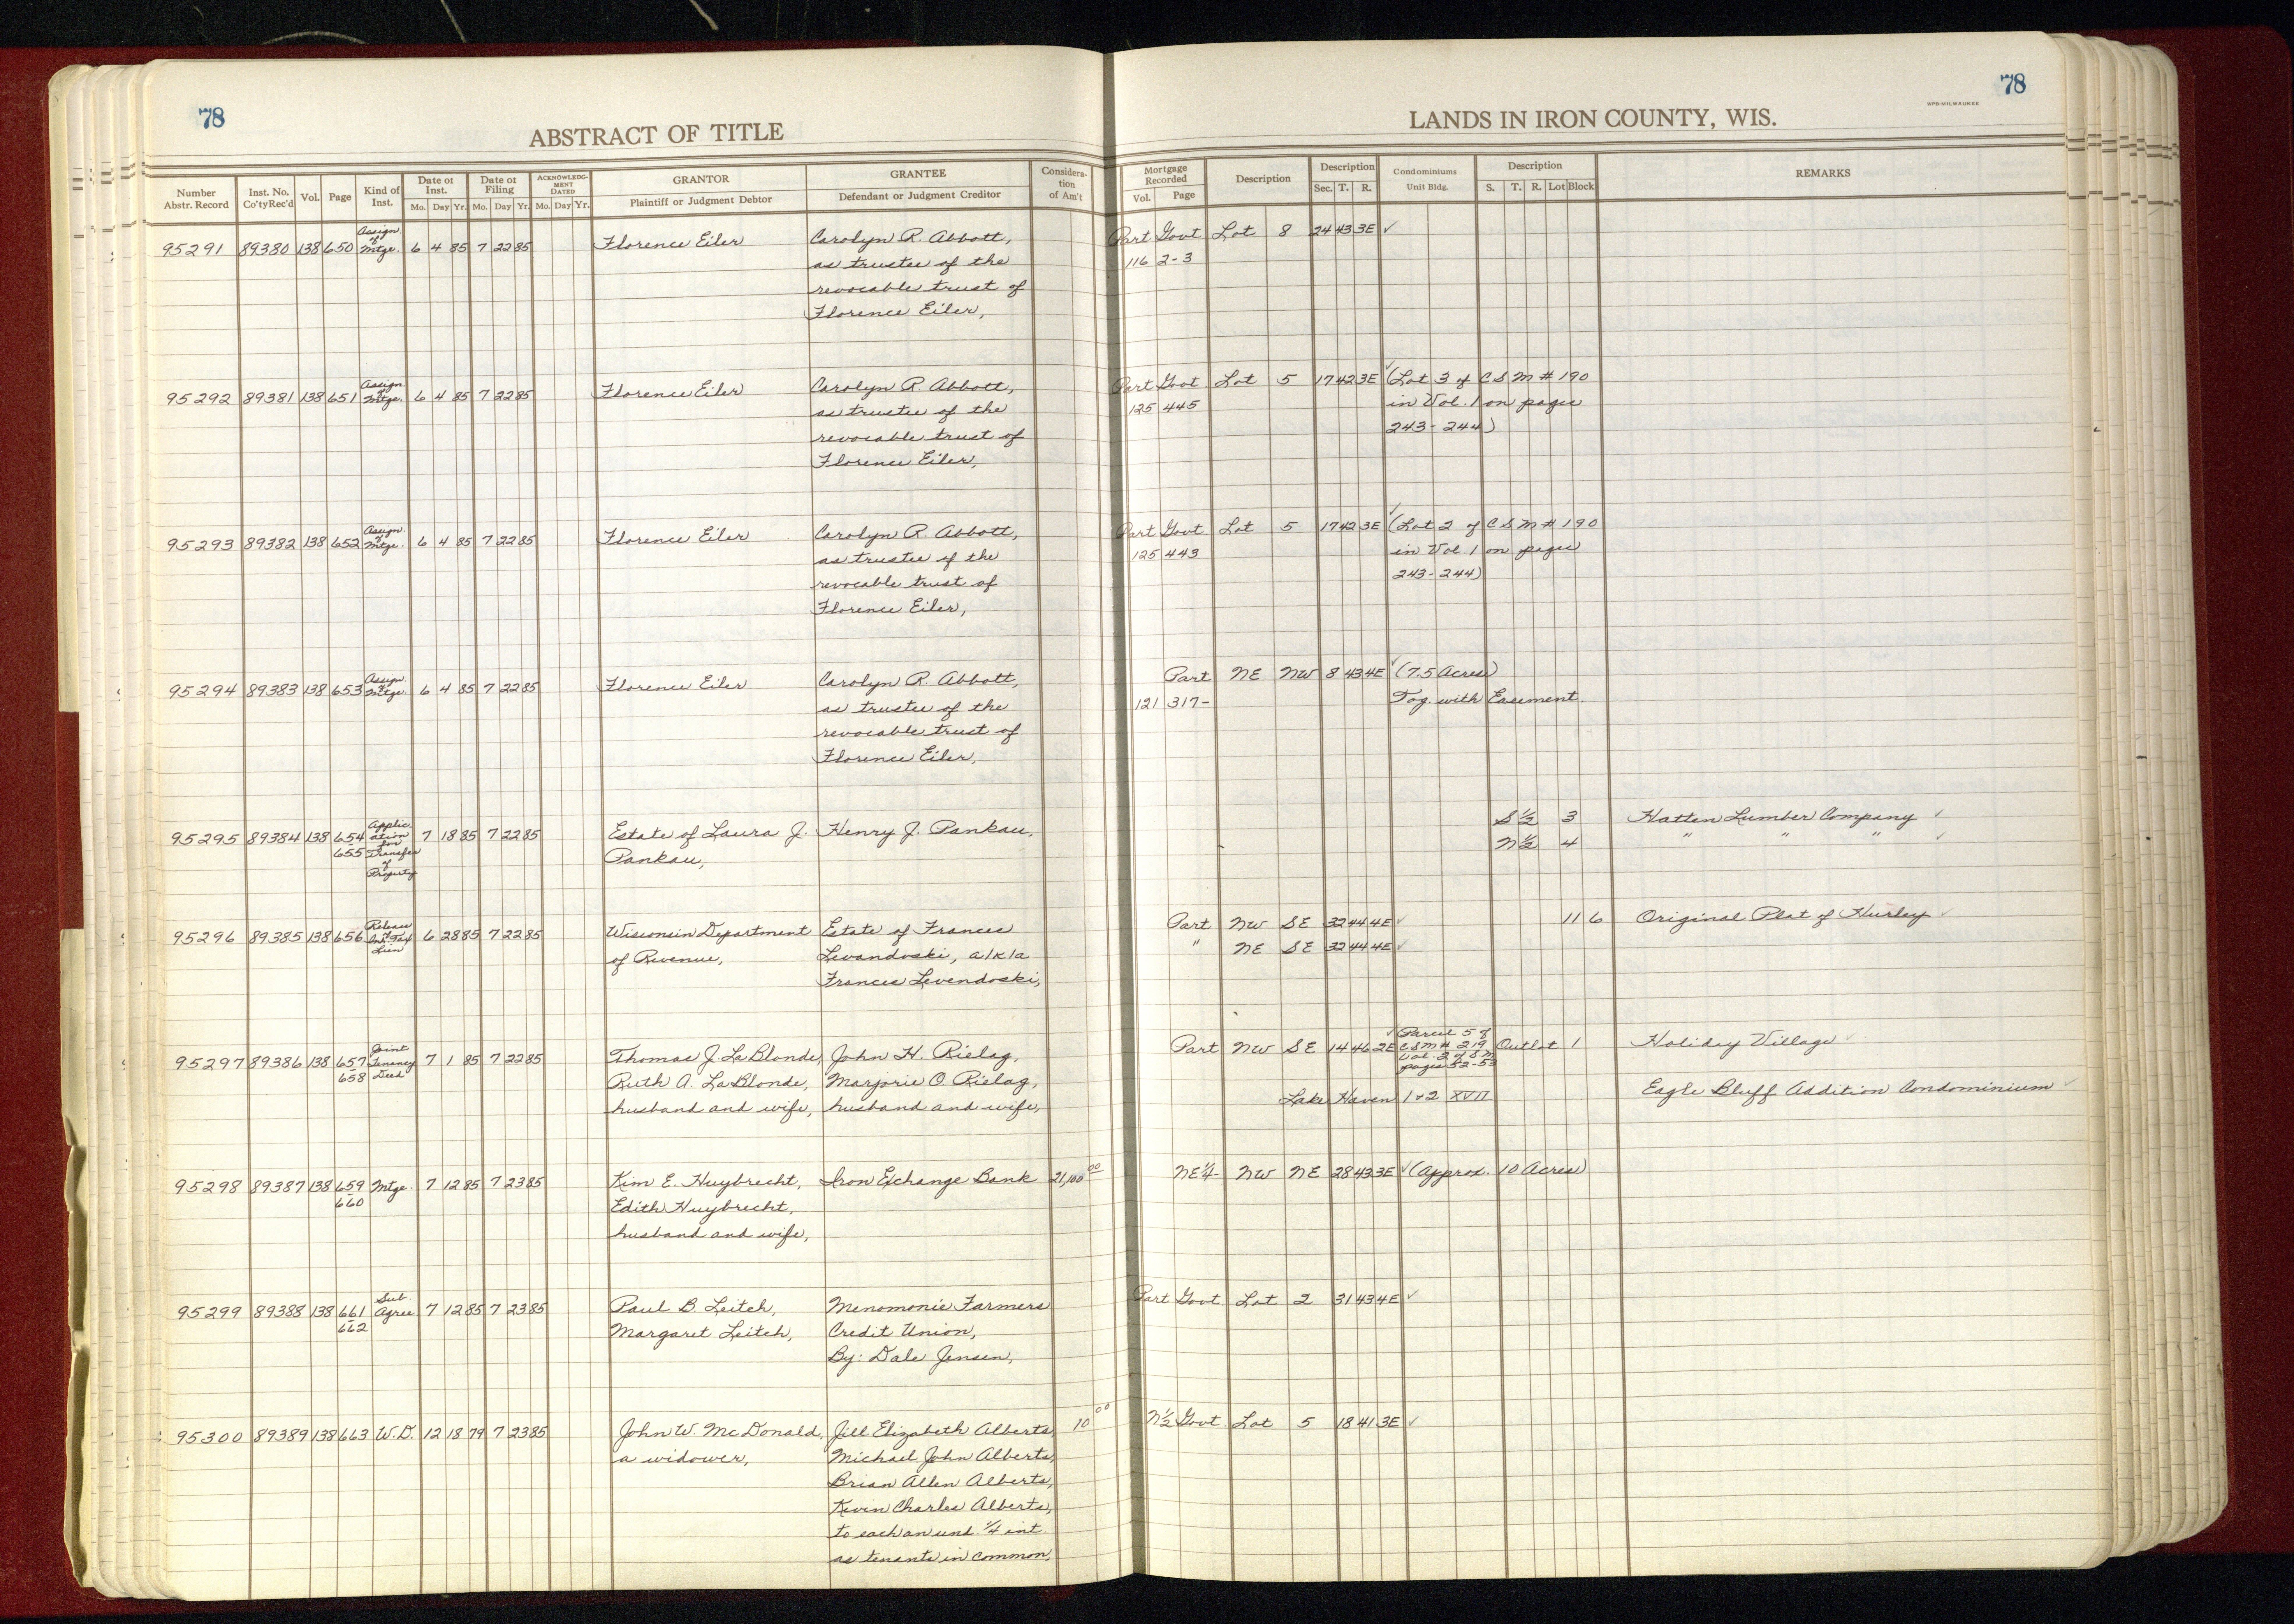 78
ABSTRACT OF TITLE
Number Abstr. Record Inst. No. Co'ty Rec'd Vol. Page Kind of Inst. Date of Inst. Mo. Day Yr. Date of Filing Mo. Day Yr. ACKNOWLEDGMENT DATED Mo. Day Yr. GRANTOR Plaintiff or Judgment Debtor GRANTEE Defendant or Judgment Creditor Consideration of Am't
95291 89380 138 650 Assign. of Mtge. 6 4 85 7 22 85 Florence Eiler Carolyn R. Abbott,
as trustee of the
revocable trust of
Florence Eiler,
95292 89381 138 651 Assign. of Mtge. 6 4 85 7 22 85 Florence Eiler Carolyn R. Abbott,
as trustee of the
revocable trust of
Florence Eiler,
95293 89382 138 652 Assign. of Mtge. 6 4 85 7 22 85 Florence Eiler Carolyn R. Abbott,
as trustee of the
revocable trust of
Florence Eiler,
95294 89383 138 653 Assign. of Mtge. 6 4 85 7 22 85 Florence Eiler Carolyn R. Abbott,
as trustee of the
revocable trust of
Florence Eiler,
95295 89384 138 654-655 Application for Transfer of Property 7 18 85 7 22 85 Estate of Laura J. Henry J. Pankau,
Pankau,
95296 89385 138 656 Release of Inh. Tax Lien 6 28 85 7 22 85 Wisconsin Department Estate of Frances
of Revenue, Levandoski, a/k/a
Frances Levendoski,
95297 89386 138 657-658 Joint Tenancy Deed 7 1 85 7 22 85 Thomas J. LaBlonde, John H. Rielag,
Ruth A. LaBlonde, Marjorie O. Rielag,
husband and wife, husband and wife,
95298 89387 138 659-660 Mtge. 7 12 85 7 23 85 Kim E. Huybrecht, Iron Exchange Bank 21,100 00
Edith Huybrecht,
husband and wife,
95299 89388 138 661-662 Sub. Agree 7 12 85 7 23 85 Paul B. Leitch, Menomonie Farmers
Margaret Leitch, Credit Union,
By: Dale Jensen,
95300 89389 138 663 W.D. 12 18 79 7 23 85 John W. McDonald, Jill Elizabeth Alberts, 10 00
a widower, Michael John Alberts,
Brian Allen Alberts,
Kevin Charles Alberts,
to each an und. 1/4 int.
as tenants in common,
78
WPB-MILWAUKEE
LANDS IN IRON COUNTY, WIS.
Mortgage Recorded Vol. Page Description Description Sec. T. R. Condominiums Unit Bldg. Description S. T. R. Lot Block REMARKS
Part Govt Lot 8 24 43 3E ✓
116 2-3
Part Govt Lot 5 17 42 3E ✓ (Lot 3 of CSM # 190
125 445 in Vol. 1 on pages
243-244)
Part Govt Lot 5 17 42 3E ✓ (Lot 2 of CSM # 190
125 443 in Vol. 1 on pages
243-244)
Part NE NW 8 43 4E ✓ (7.5 Acres)
121 317- Tog. with Easement.
S 1/2 3 Hatten Lumber Company ✓
N 1/2 4 " " " ✓
Part NW SE 32 44 4E ✓ 11 6 Original Plat of Hurley ✓
" NE SE 32 44 4E ✓
Part NW SE 14 46 2E ✓ Parcel 5 of CSM # 219 Vol. 2 of SM pages 52-53 Outlot 1 Holiday Village ✓
Lake Haven 1 & 2 XVII Eagle Bluff Addition Condominium ✓
NE 1/4- NW NE 28 43 3E ✓ (Approx. 10 Acres)
Part Govt Lot 2 31 43 4E ✓
N 1/2 Govt. Lot 5 18 41 3E ✓